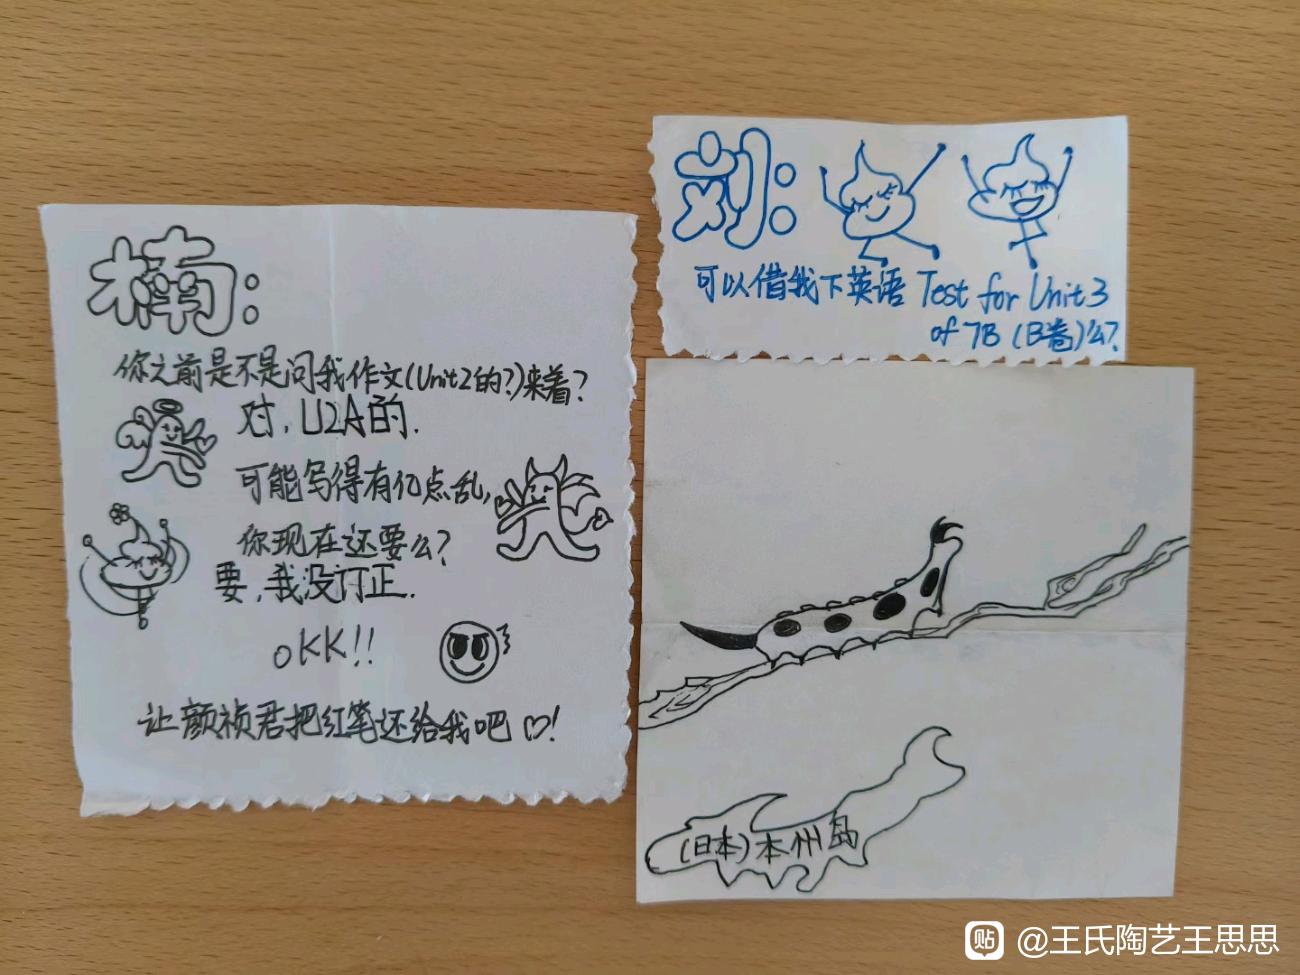 楠：
你之前是不是问我作文(Unit2的?)来着?
对，U2A的.
可能写得有亿点乱，
你现在还要么?
要，我没订正.
OKK!!
让颜祯君把红笔还给我吧♡!
刘：
可以借我下英语 Test for Unit3
of 7B (B卷)么?
(日本)本州岛
贴 @王氏陶艺王思思